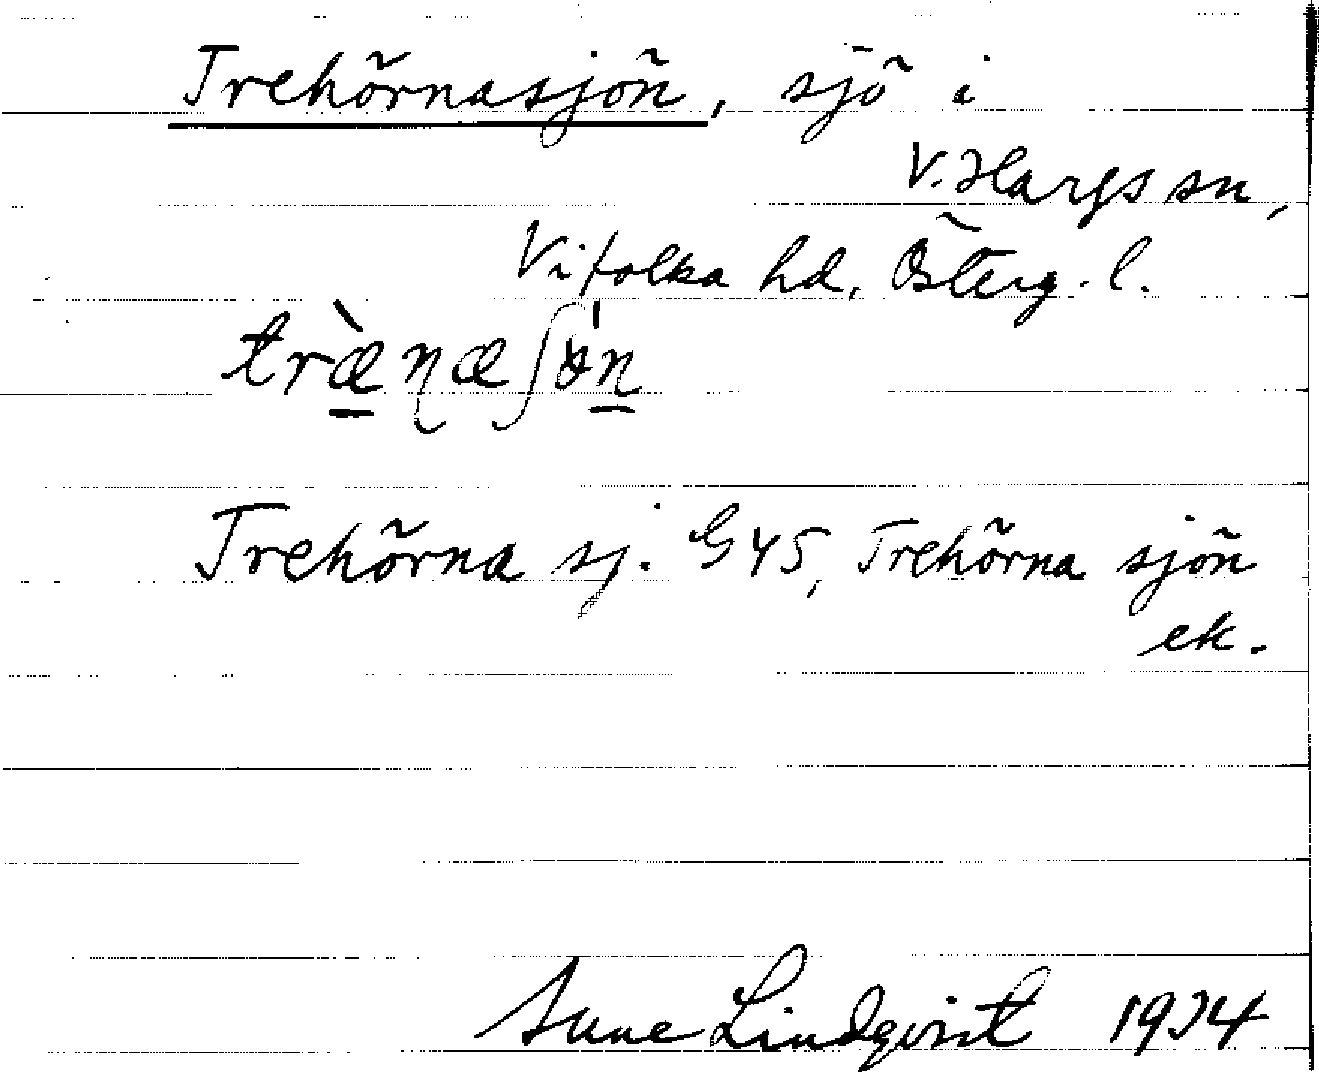 Trehörnasjön, sjö i
V. Hargs sn,
Vifolka hd, Österg. l.
Trehörna sj. G45, Trehörna sjön
ek.
Sune Lindqvist 1934